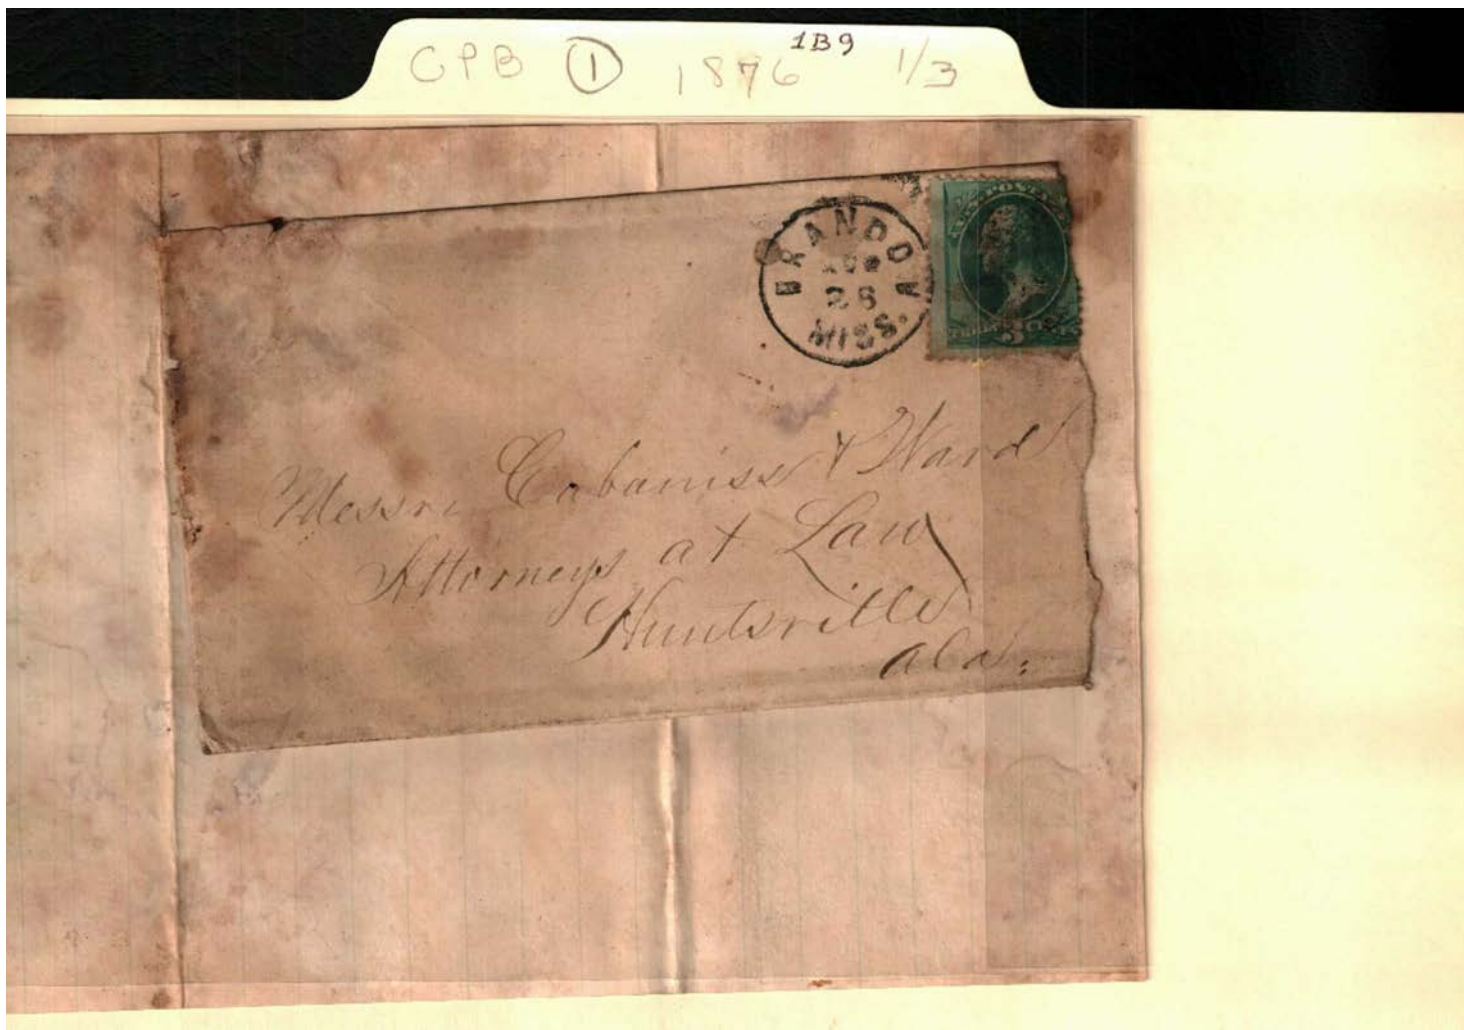 CPB ① 1876 1B9 1/3
BRANDON
AUG
28
MISS.
U.S. POSTAGE
3
Messrs Cabaniss & Ward
Attorneys at Law
Huntsville
Ala.